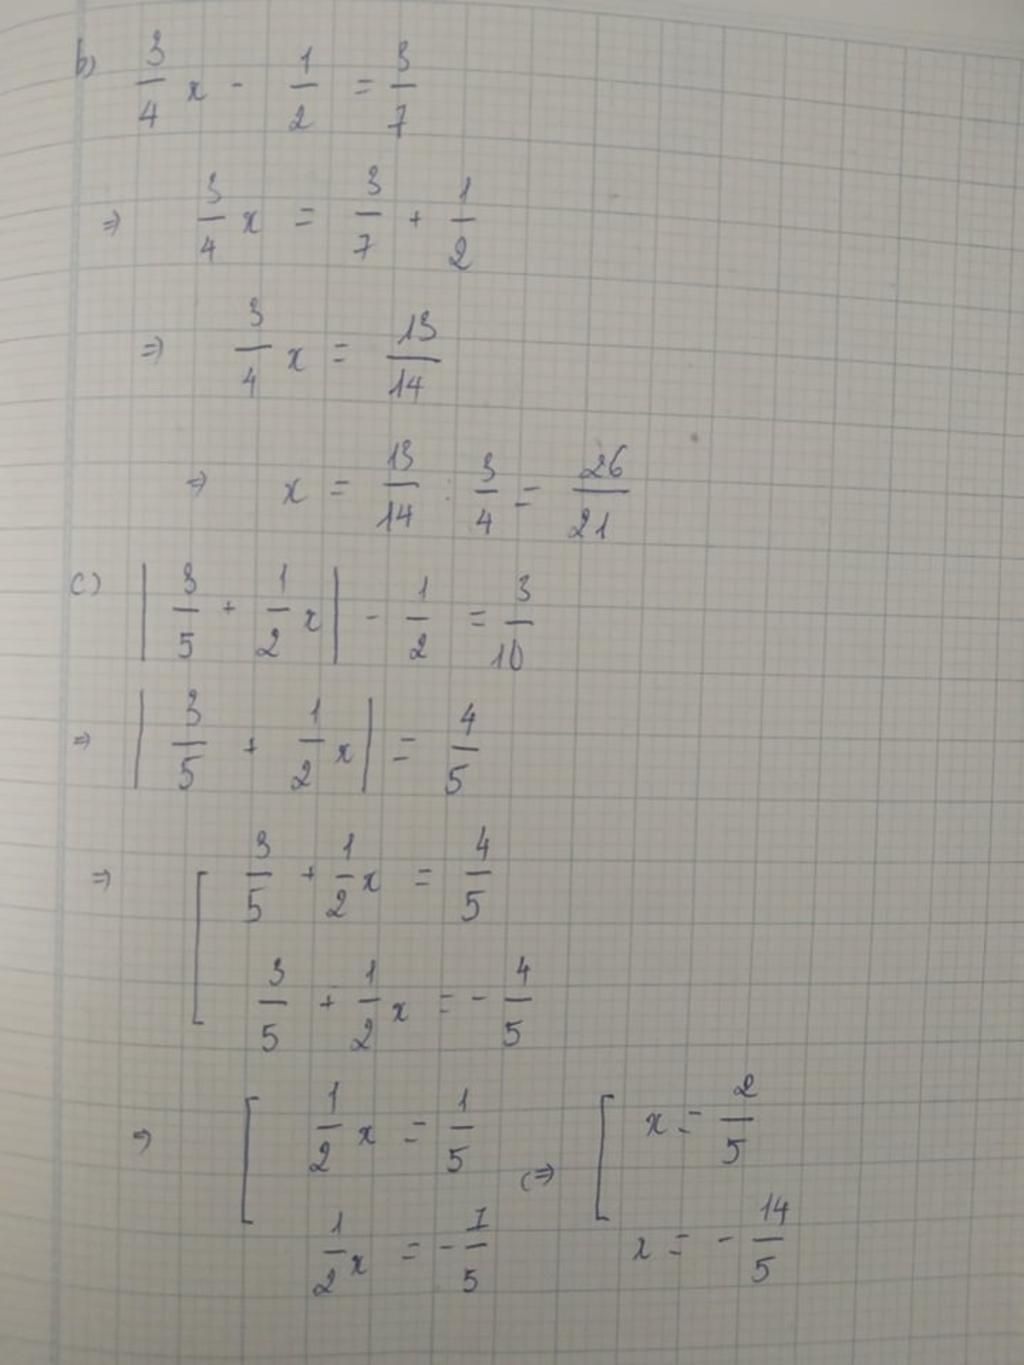 b) 3/4 x - 1/2 = 3/7
⇒ 3/4 x = 3/7 + 1/2
⇒ 3/4 x = 13/14
⇒ x = 13/14 : 3/4 = 26/21
c) | 3/5 + 1/2 x | - 1/2 = 3/10
⇒ | 3/5 + 1/2 x | = 4/5
⇒ [ 3/5 + 1/2 x = 4/5
3/5 + 1/2 x = - 4/5
⇒ [ 1/2 x = 1/5 (⇒ [ x = 2/5
1/2 x = - 7/5 x = - 14/5